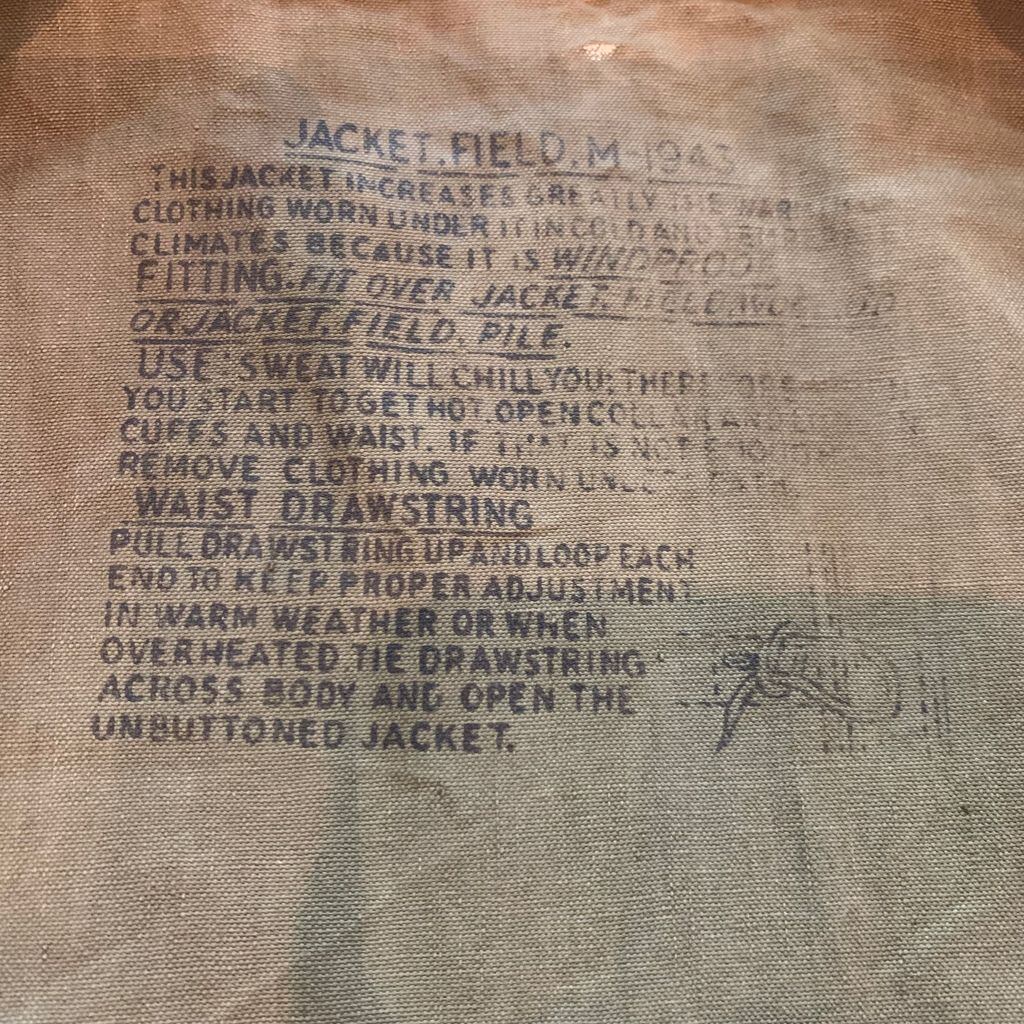 JACKET, FIELD, M-1943
THIS JACKET INCREASES GREATLY THE
CLOTHING WORN UNDER IT IN COLD AND
CLIMATES BECAUSE IT IS WINDPROOF
FITTING: FIT OVER JACKET, FIELD,
OR JACKET, FIELD, PILE.
USE: SWEAT WILL CHILL YOU; THEREFORE
YOU START TO GET HOT, OPEN COLLAR AND
CUFFS AND WAIST. IF THAT IS NOT ENOUGH
REMOVE CLOTHING WORN UNDER
WAIST DRAWSTRING
PULL DRAWSTRING UP AND LOOP EACH
END TO KEEP PROPER ADJUSTMENT.
IN WARM WEATHER OR WHEN
OVERHEATED TIE DRAWSTRING
ACROSS BODY AND OPEN THE
UNBUTTONED JACKET.